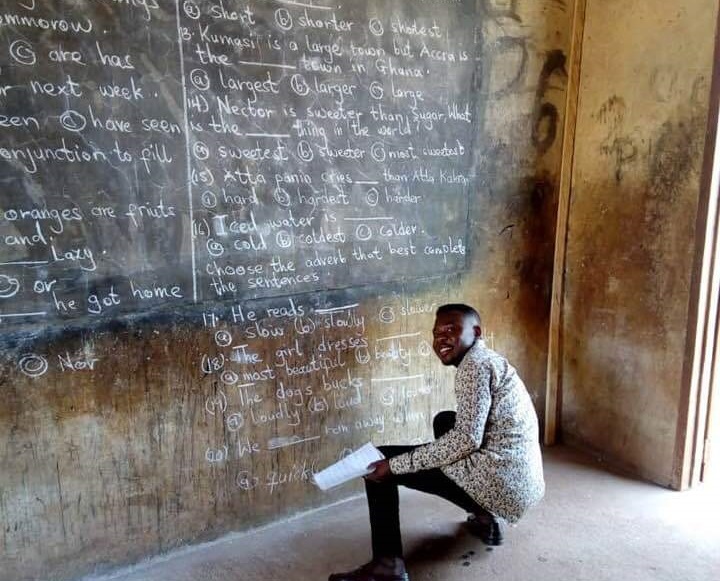 mmorow.
ⓒ are has
r next week.
een ⓒ have seen
onjunction to fill
oranges are friuts
and
____ Lazy.
ⓒ or
____ he got home
ⓒ Nor
ⓐ short ⓑ shorter ⓒ shotest
13. Kumasi is a large town but Accra is
the ____ town in Ghana.
ⓐ largest ⓑ larger ⓒ large
14) Nector is sweeter than sugar, What
is the ____ thing in the world
ⓐ sweetest ⓑ sweeter ⓒ most sweetest
(15) Atta panin cries ____ than Atta Kakra
ⓐ hard ⓑ hardest ⓒ harder
(16) Iced water is ____
ⓐ cold ⓑ coldest ⓒ colder.
choose the adverb that best complete
the sentences
17. He reads ____
ⓐ slow (b) slowly ⓒ slower
(18). The girl dresses ____
ⓐ most beautiful ⓑ beauty
(19) The dogs bucks ____
ⓐ loudly (b) loud ⓒ
(20) We ____ ran away when
ⓐ quick